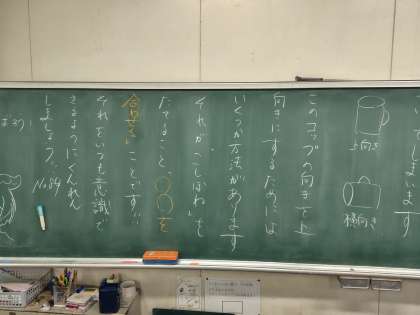 います
上向き
横向き
このコップの向きを上
向きにするためには
いくつか方法があります
それが「こしぼね」を
たてること、○○を
合わせる」ことです!!
それをいつも意識で
きるようにくんれん
しましょう。
No.84